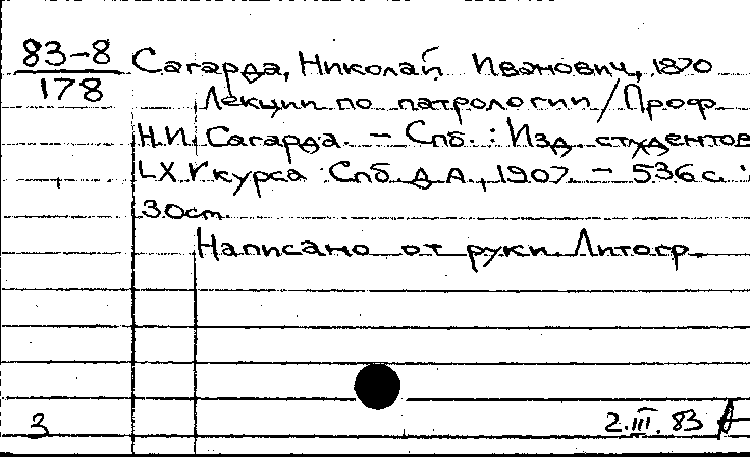 83-8
178
Сагарда, Николай Иванович, 1870
Лекции по патрологии / Проф.
Н.И. Сагарда. - Спб.: Изд. студентов
LXV курса Спб. Д.А., 1907. - 536 с.
30 см.
Написано от руки. Литогр.
3
2.III.83